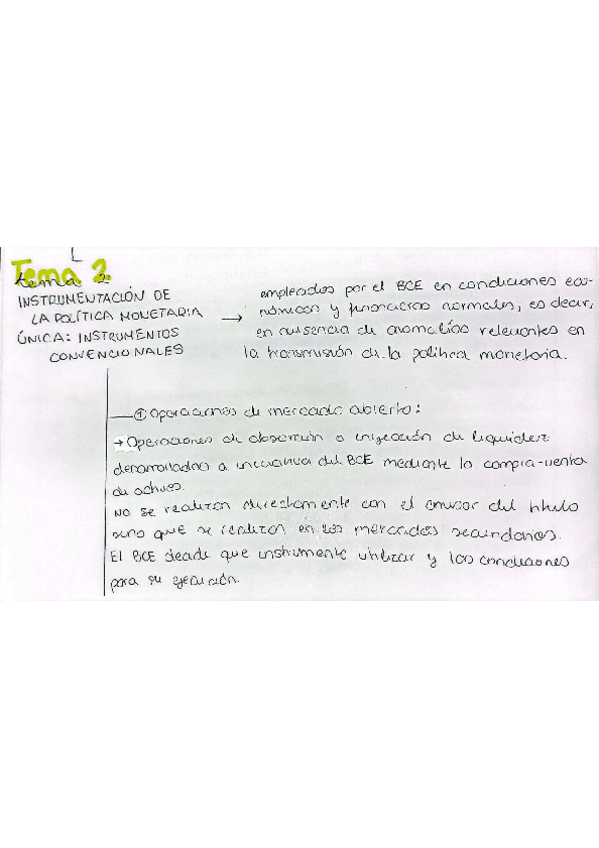 Tema 2
tema 2
INSTRUMENTACIÓN DE
LA POLÍTICA MONETARIA
ÚNICA: INSTRUMENTOS
CONVENCIONALES
→ empleados por el BCE en condiciones eco-
nómicas y financieras normales, es decir,
en ausencia de anomalías relevantes en
la transmisión de la política monetaria.
① Operaciones de mercado abierto:
→ Operaciones de absorción o inyección de liquidez
desarrolladas a iniciativa del BCE mediante la compra-venta
de activos.
No se realizan directamente con el emisor del título
sino que se realizan en los mercados secundarios.
El BCE decide que instrumento utilizar y las condiciones
para su ejecución.